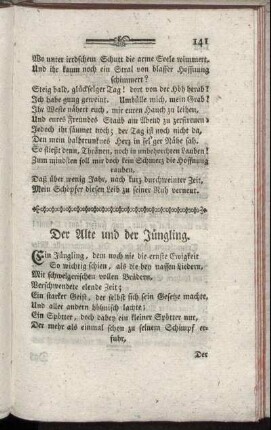 141
Wo unter ierdschem Schutt die arme Seele wimmert,
Und ihr kaum noch ein Stral von blasser Hoffnung
schimmert?
Steig bald, glückselger Tag! dort von der Höh herab!
Ich habe gnug geweint. Umhülle mich, mein Grab!
Ihr Weste nähert euch, mir euren Hauch zu leihen,
Und eures Freundes Staub am Abend zu zerstreuen!
Jedoch ihr säumet noch; der Tag ist noch nicht da,
Den mein halbtrunknes Herz in sel'ger Nähe sah.
So fließt denn, Thränen, noch in unbewachten Lauben!
Zum mindsten soll mir doch kein Schmerz die Hoffnung
rauben,
Daß über wenig Jahr, nach kurz durchweinter Zeit,
Mein Schöpfer diesen Leib zu seiner Ruh verneut.
Der Alte und der Jüngling.
Ein Jüngling, dem noch nie die ernste Ewigkeit
So wichtig schien, als die bey nassen Liedern,
Mit schwelgerischen vollen Brüdern,
Verschwendete elende Zeit;
Ein starker Geist, der selbst sich sein Gesetze machte,
Und aller andern höhnisch lachte;
Ein Spötter, doch dabey ein kleiner Spötter nur,
Der mehr als einmal schon zu seinem Schimpf er-
fuhr,
Der